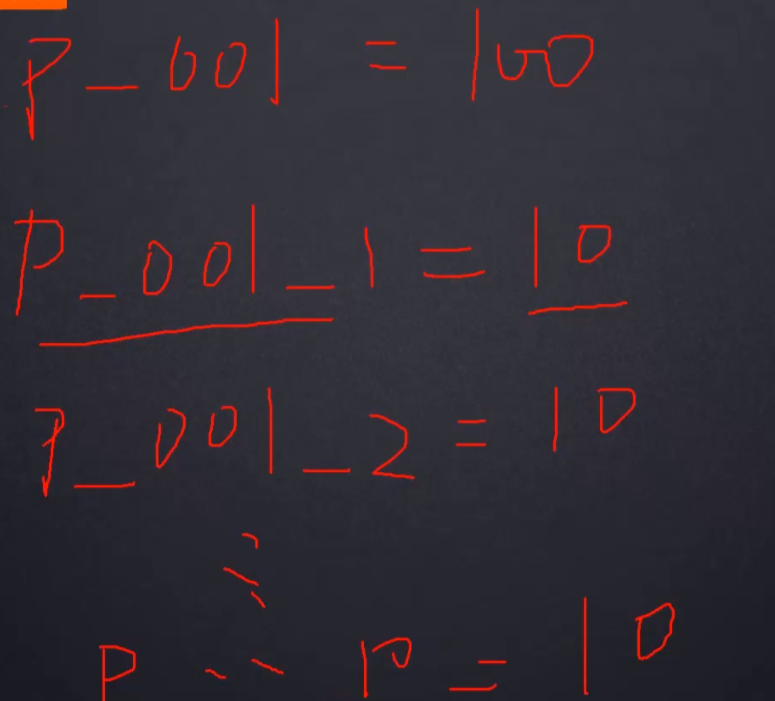 P_001 = 100
P_001_1 = 10
P_001_2 = 10
⋮
P ... 10 = 10